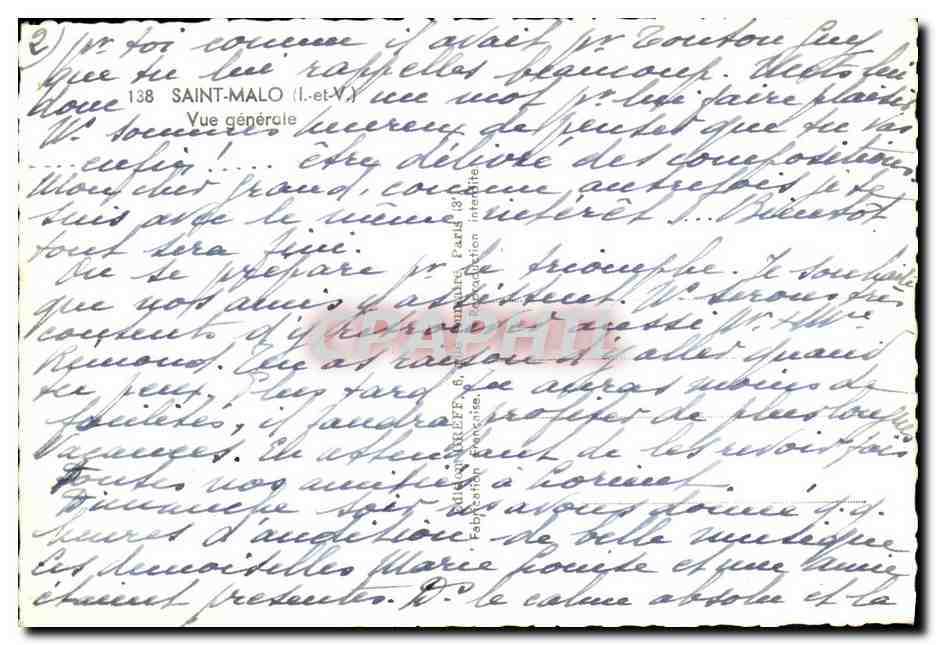 2) pr toi comme il avait pr Tonton Guy
que tu lui rappelles beaucoup. Mets lui
donc un mot pr lui faire plaisir
138 SAINT-MALO (I.-et-V.)
Vue générale
Ns sommes heureux de penser que tu vas
....enfin !.... être délivré des compositions.
Mon cher grand, comme autrefois je te
suis avec le même intérêt !... Bientôt
tout sera fini.
On se prépare pr le triomphe. Je souhaite
que nos amis y assistent. Ns serons très
contents d'y retrouver aussi Mr & Mme
Remond. Tu as raison d'y aller quand
tu peux. Plus tard tu auras moins de
facilités, il faudra profiter de plus longues
vacances. En attendant de les revoir fais
toutes nos amitiés à Lorient.
Dimanche soir ns avons donné q.q.
heures d'audition de belle musique
Les demoiselles Marie Louise et une amie
étaient présentes. Ds le calme absolu et la
Edition GREFF, 6, Paris 13e
Fabrication Française. Reproduction interdite.
CPAPHIL